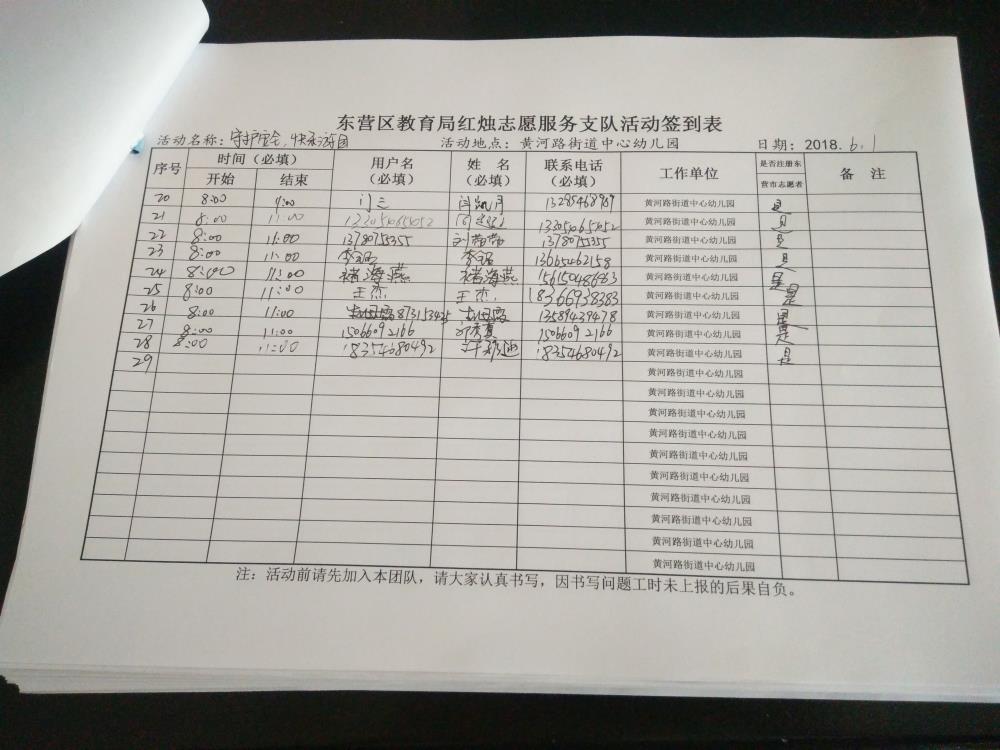 东营区教育局红烛志愿服务支队活动签到表
活动名称：守护安全，快乐游园 活动地点：黄河路街道中心幼儿园 日期：2018.6.1
序号 时间（必填） 用户名（必填） 姓 名（必填） 联系电话（必填） 工作单位 是否注册东营市志愿者 备 注
开始 结束
20 8:00 闫凯月 黄河路街道中心幼儿园 是
21 8:00 11:00 13305465052 13305465052 黄河路街道中心幼儿园 是
22 8:00 11:00 1378075355 刘蒂蒂 1378075355 黄河路街道中心幼儿园 是
23 8:00 11:00 13665462158 黄河路街道中心幼儿园 是
24 8:00 11:00 褚海燕 褚海燕 黄河路街道中心幼儿园 是
25 8:00 11:00 王杰 王杰 18366938383 黄河路街道中心幼儿园 是
26 8:00 11:00 13589439478 黄河路街道中心幼儿园 是
27 8:00 11:00 15066092166 15066092166 黄河路街道中心幼儿园 是
28 8:00 11:00 18354680492 18354680492 黄河路街道中心幼儿园 是
29 黄河路街道中心幼儿园
黄河路街道中心幼儿园
黄河路街道中心幼儿园
黄河路街道中心幼儿园
黄河路街道中心幼儿园
黄河路街道中心幼儿园
黄河路街道中心幼儿园
黄河路街道中心幼儿园
黄河路街道中心幼儿园
黄河路街道中心幼儿园
注：活动前请先加入本团队，请大家认真书写，因书写问题工时未上报的后果自负。